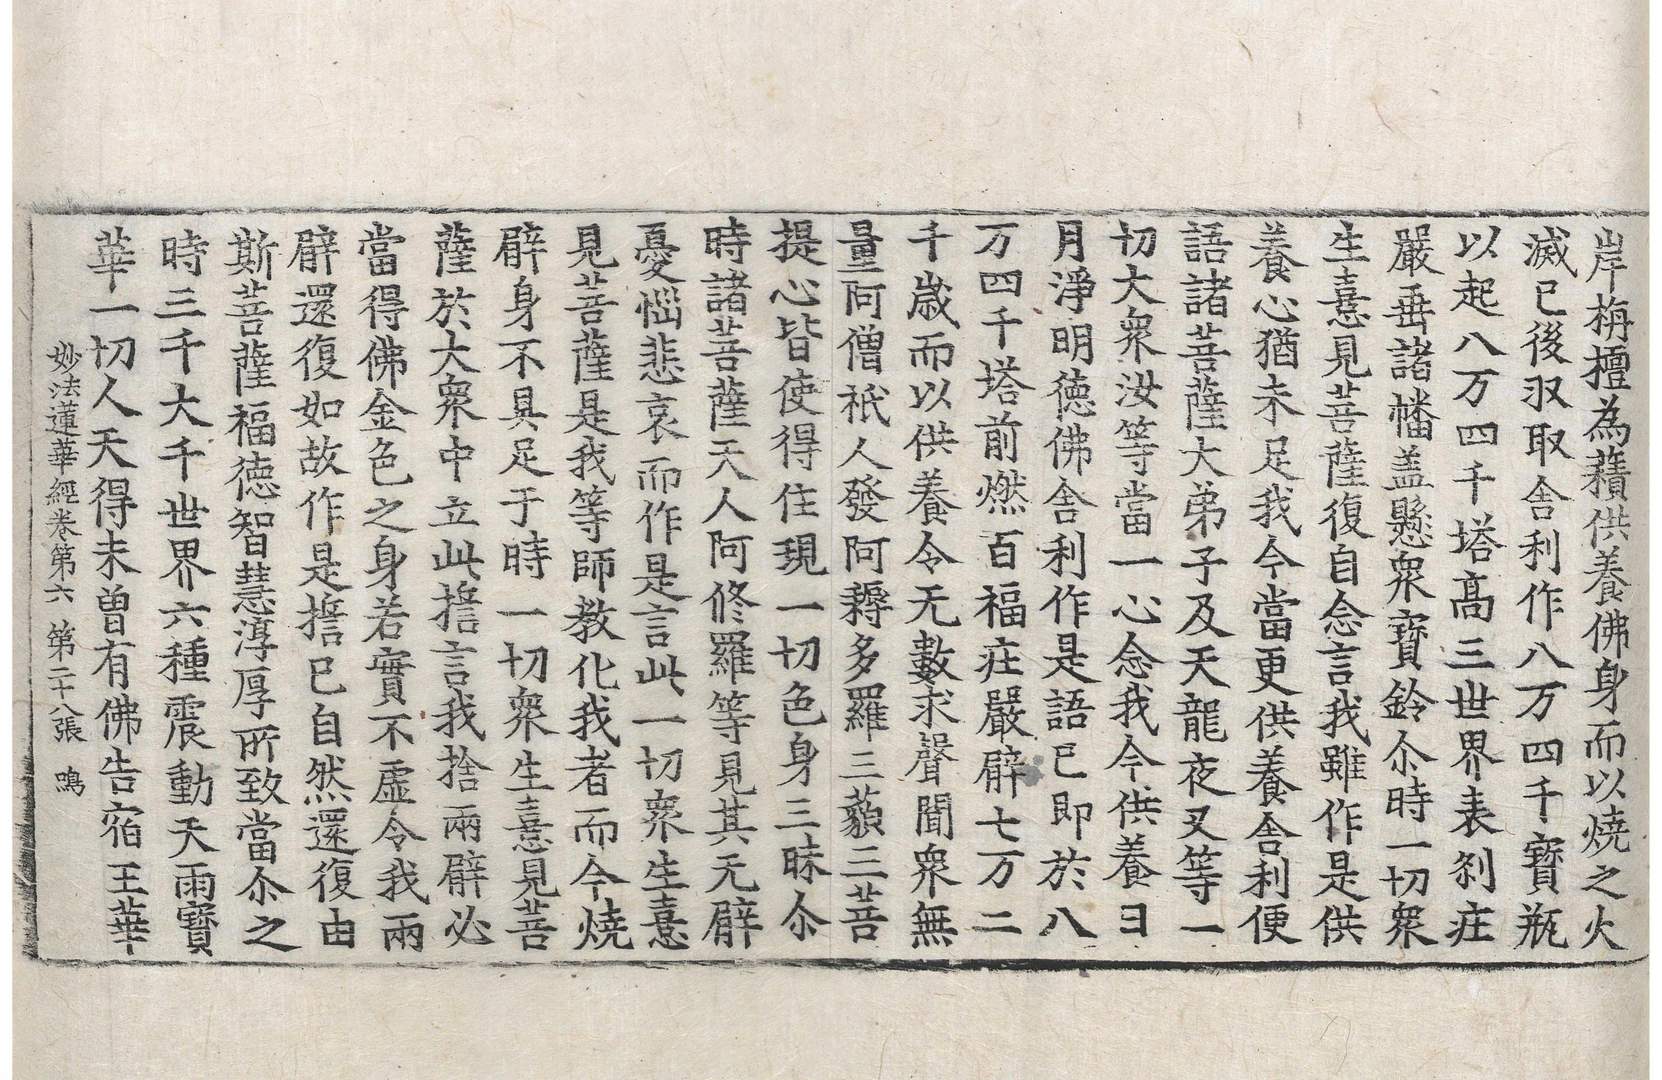 岸栴檀為䕩供養佛身而以燒之火
滅已後収取舍利作八万四千寳瓶
以起八万四千塔髙三世界表刹庄
嚴垂諸幡盖懸衆寳鈴尒時一切衆
生憙見菩薩復自念言我雖作是供
養心猶未足我今當更供養舍利便
語諸菩薩大弟子及天龍夜叉等一
切大衆汝等當一心念我今供養日
月淨明徳佛舍利作是語已即於八
万四千塔前燃百福庄嚴臂七万二
千歳而以供養令无數求聲聞衆無
量阿僧祇人發阿耨多羅三藐三菩
提心皆使得住現一切色身三昧尒
時諸菩薩天人阿修羅等見其无臂
憂惱悲哀而作是言此一切衆生憙
見菩薩是我等師教化我者而今燒
臂身不具足于時一切衆生憙見菩
薩於大衆中立此擔言我捨兩臂必
當得佛金色之身若實不虛令我兩
臂還復如故作是擔已自然還復由
斯菩薩福徳智慧淳厚所致當尒之
時三千大千世界六種震動天雨寳
華一切人天得未曾有佛告宿王華
妙法蓮華經卷第六 第二十八張 鳴